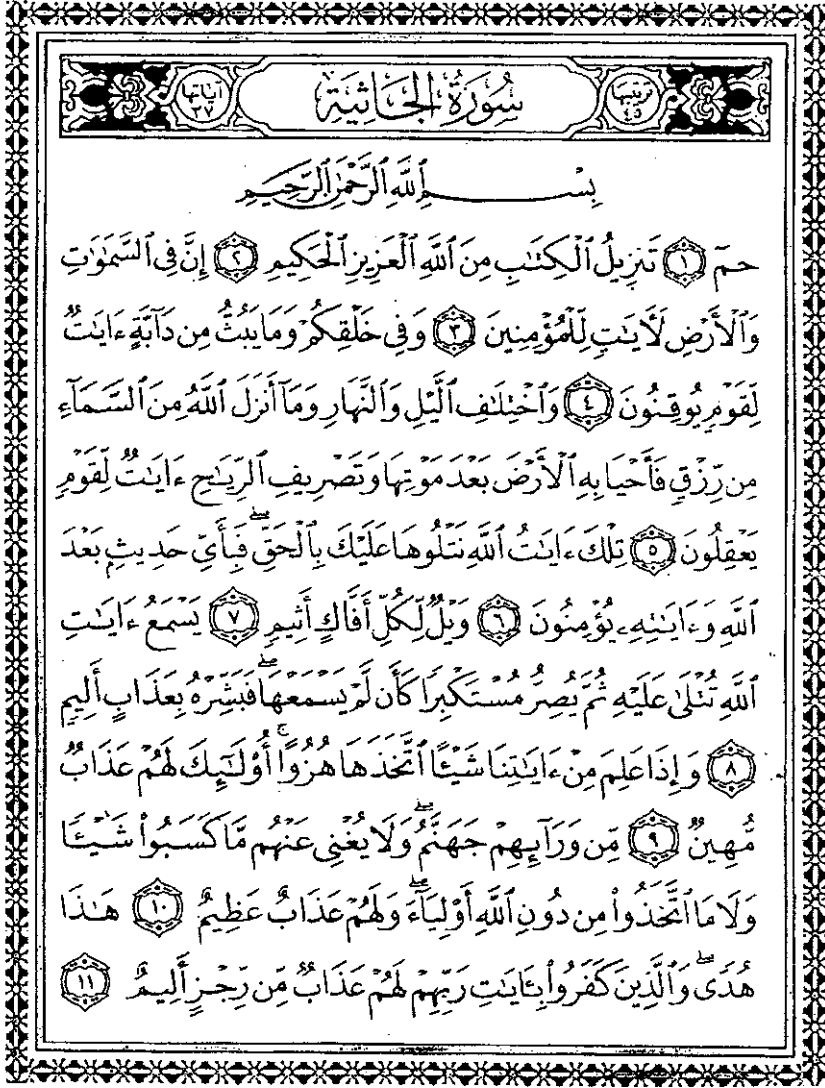 ترتيبها ٤٥
سُورَةُ الجَاثِيَةِ
آياتها ٣٧
بِسْمِ ٱللَّهِ ٱلرَّحْمَٰنِ ٱلرَّحِيمِ
حمٓ ١ تَنزِيلُ ٱلْكِتَٰبِ مِنَ ٱللَّهِ ٱلْعَزِيزِ ٱلْحَكِيمِ ٢ إِنَّ فِى ٱلسَّمَٰوَٰتِ
وَٱلْأَرْضِ لَءَايَٰتٍ لِّلْمُؤْمِنِينَ ٣ وَفِى خَلْقِكُمْ وَمَا يَبُثُّ مِن دَآبَّةٍ ءَايَٰتٌ
لِّقَوْمٍ يُوقِنُونَ ٤ وَٱخْتِلَٰفِ ٱلَّيْلِ وَٱلنَّهَارِ وَمَآ أَنزَلَ ٱللَّهُ مِنَ ٱلسَّمَآءِ
مِن رِّزْقٍ فَأَحْيَا بِهِ ٱلْأَرْضَ بَعْدَ مَوْتِهَا وَتَصْرِيفِ ٱلرِّيَٰحِ ءَايَٰتٌ لِّقَوْمٍ
يَعْقِلُونَ ٥ تِلْكَ ءَايَٰتُ ٱللَّهِ نَتْلُوهَا عَلَيْكَ بِٱلْحَقِّ ۖ فَبِأَىِّ حَدِيثٍۭ بَعْدَ
ٱللَّهِ وَءَايَٰتِهِۦ يُؤْمِنُونَ ٦ وَيْلٌ لِّكُلِّ أَفَّاكٍ أَثِيمٍ ٧ يَسْمَعُ ءَايَٰتِ
ٱللَّهِ تُتْلَىٰ عَلَيْهِ ثُمَّ يُصِرُّ مُسْتَكْبِرًا كَأَن لَّمْ يَسْمَعْهَا ۖ فَبَشِّرْهُ بِعَذَابٍ أَلِيمٍ
٨ وَإِذَا عَلِمَ مِنْ ءَايَٰتِنَا شَيْـًٔا ٱتَّخَذَهَا هُزُوًا ۚ أُو۟لَٰٓئِكَ لَهُمْ عَذَابٌ
مُّهِينٌ ٩ مِّن وَرَآئِهِمْ جَهَنَّمُ ۖ وَلَا يُغْنِى عَنْهُم مَّا كَسَبُوا۟ شَيْـًٔا
وَلَا مَا ٱتَّخَذُوا۟ مِن دُونِ ٱللَّهِ أَوْلِيَآءَ ۖ وَلَهُمْ عَذَابٌ عَظِيمٌ ١٠ هَٰذَا
هُدًى ۖ وَٱلَّذِينَ كَفَرُوا۟ بِـَٔايَٰتِ رَبِّهِمْ لَهُمْ عَذَابٌ مِّن رِّجْزٍ أَلِيمٌ ١١